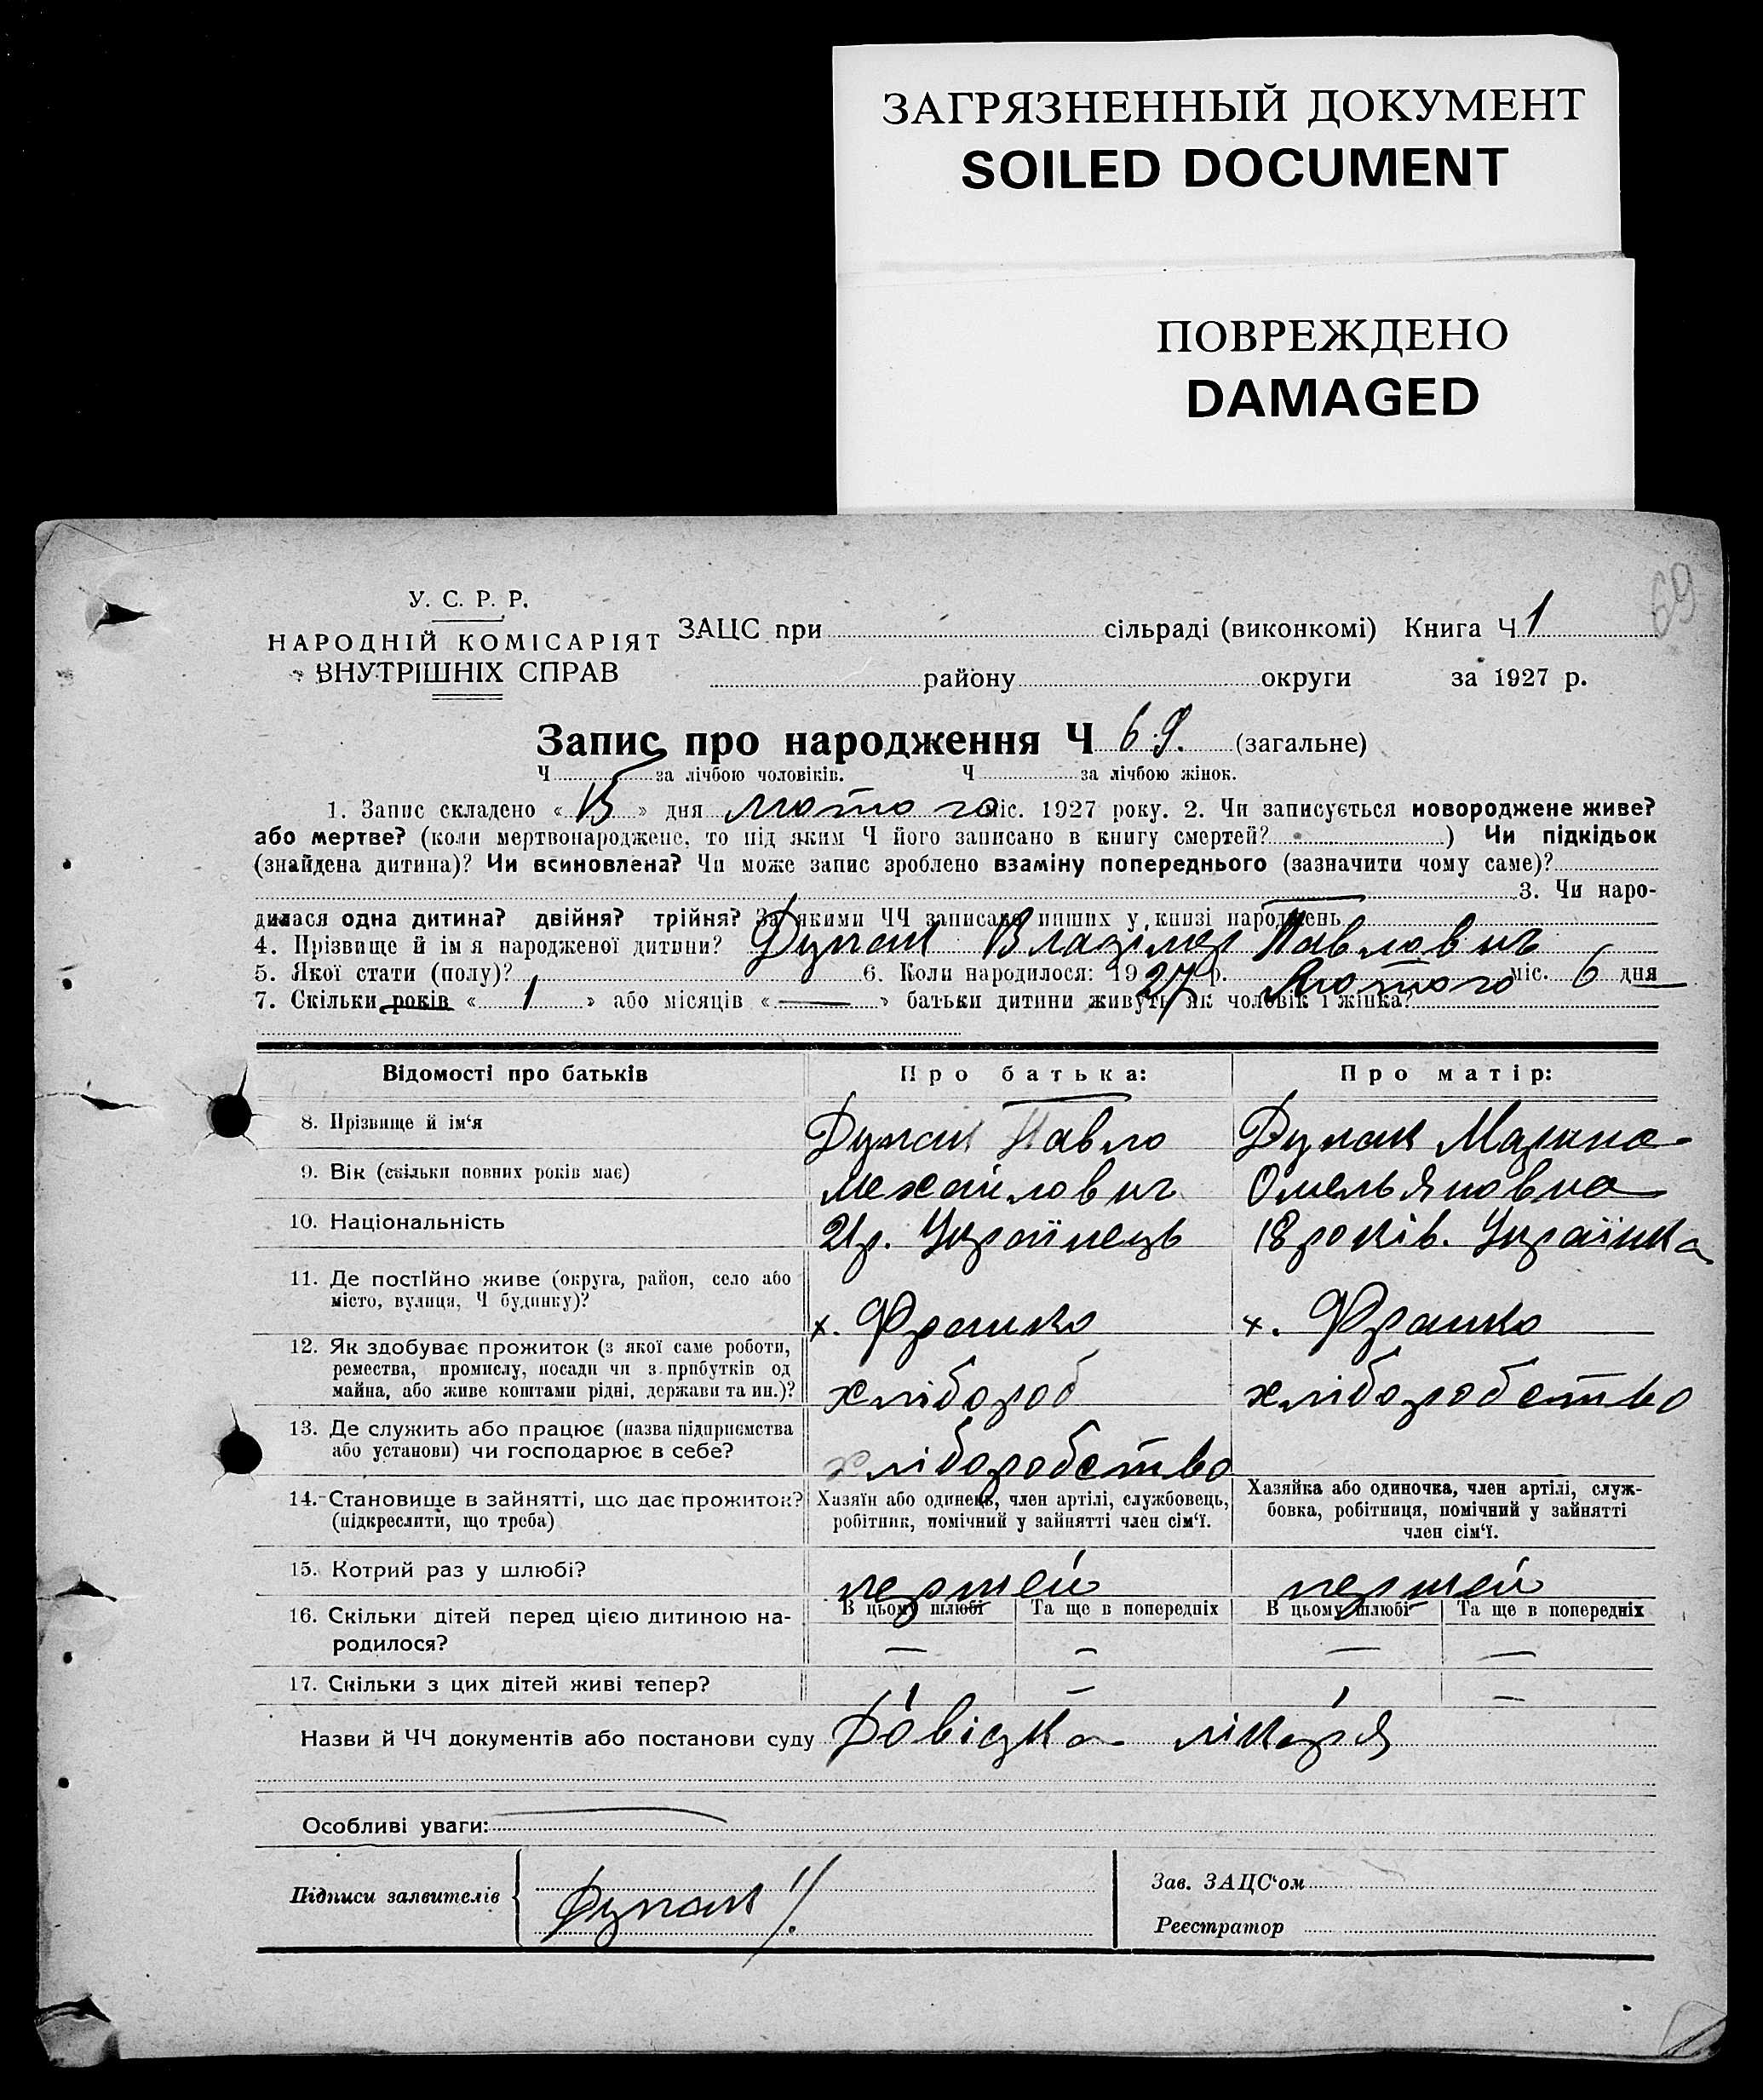 ЗАГРЯЗНЕННЫЙ ДОКУМЕНТ
SOILED DOCUMENT
ПОВРЕЖДЕНО
DAMAGED
69
У. С. Р. Р.
НАРОДНІЙ КОМІСАРІЯТ
ВНУТРІШНІХ СПРАВ
ЗАЦС при сільраді (виконкомі) Книга Ч 1
району округи за 1927 р.
Запис про народження Ч 69. (загальне)
Ч за лічбою чоловіків. Ч за лічбою жінок.
1. Запис складено « 15 » дня лютого міс. 1927 року. 2. Чи записується новороджене живе?
або мертве? (коли мертвонароджене, то під яким Ч його записано в книгу смертей? ) Чи підкідьок
(знайдена дитина)? Чи всиновлена? Чи може запис зроблено взаміну попереднього (зазначити чому саме)?
3. Чи наро-
дилася одна дитина? двійня? трійня? За якими ЧЧ записано инших у книзі народжень
4. Прізвище й імя народженої дитини? Дупак Владімер Павлович
5. Якої стати (полу)? 6. Коли народилося: 1927 р. Лютого міс. 6 дня
7. Скільки років « 1 » або місяців « — » батьки дитини живуть як чоловік і жінка?
Відомості про батьків Про батька: Про матір:
8. Прізвище й ім‘я Дупак Павло Дупак Марина
9. Вік (скільки повних років має) Мехайлович Омельяновна
10. Національність 21р. Українець 18 років. Українка
11. Де постійно живе (округа, район, село або
місто, вулиця, Ч будинку)? х. Франко х. Франко
12. Як здобуває прожиток (з якої саме роботи,
ремества, промислу, посади чи з прибутків од
майна, або живе коштами рідні, держави та ин.)? хлібороб хліборобство
13. Де служить або працює (назва підприємства
або установи) чи господарює в себе? хліборобство
14. Становище в зайнятті, що дає прожиток?
(підкреслити, що треба)
Хазяїн або одинець, член артілі, службовець,
робітник, помічний у зайнятті член сім‘ї.
Хазяйка або одиночка, член артілі, служ-
бовка, робітниця, помічний у зайнятті
член сім‘ї.
15. Котрий раз у шлюбі? першей першей
16. Скільки дітей перед цією дитиною на-
родилося?
В цьому шлюбі Та ще в попередніх В цьому шлюбі Та ще в попередніх
— — — —
17. Скільки з цих дітей живі тепер? 1 — 1 —
Назви й ЧЧ документів або постанови суду Довідка лікаря
Особливі уваги:
Підписи заявителів Дупак
Зав. ЗАЦС‘ом
Реєстратор